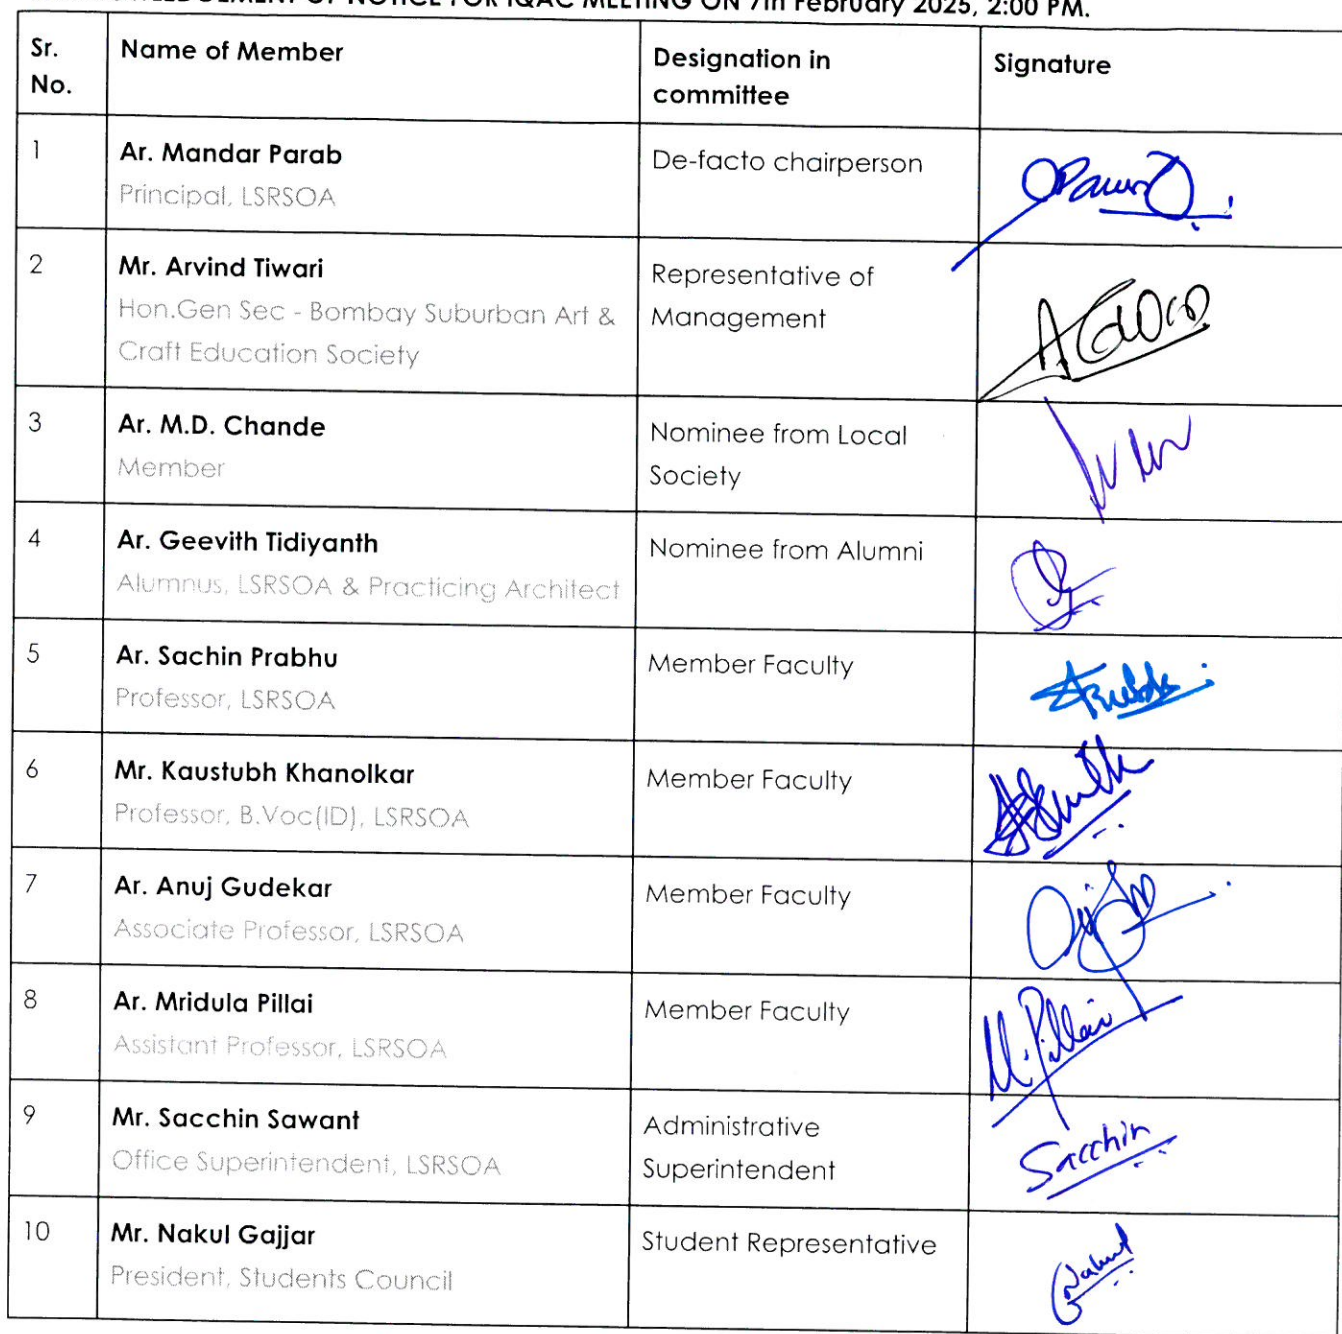 OF NOTICE FOR IQAC MEETING ON 7th February 2025, 2:00 PM.
Sr. No.
Name of Member
Designation in committee
Signature
1
Ar. Mandar Parab
Principal, LSRSOA
De-facto chairperson
2
Mr. Arvind Tiwari
Hon.Gen Sec - Bombay Suburban Art &
Craft Education Society
Representative of
Management
3
Ar. M.D. Chande
Member
Nominee from Local
Society
4
Ar. Geevith Tidiyanth
Alumnus, LSRSOA & Practicing Architect
Nominee from Alumni
5
Ar. Sachin Prabhu
Professor, LSRSOA
Member Faculty
6
Mr. Kaustubh Khanolkar
Professor, B.Voc(ID), LSRSOA
Member Faculty
7
Ar. Anuj Gudekar
Associate Professor, LSRSOA
Member Faculty
8
Ar. Mridula Pillai
Assistant Professor, LSRSOA
Member Faculty
M. Pillai
9
Mr. Sacchin Sawant
Office Superintendent, LSRSOA
Administrative
Superintendent
Sacchin
10
Mr. Nakul Gajjar
President, Students Council
Student Representative
Nakul